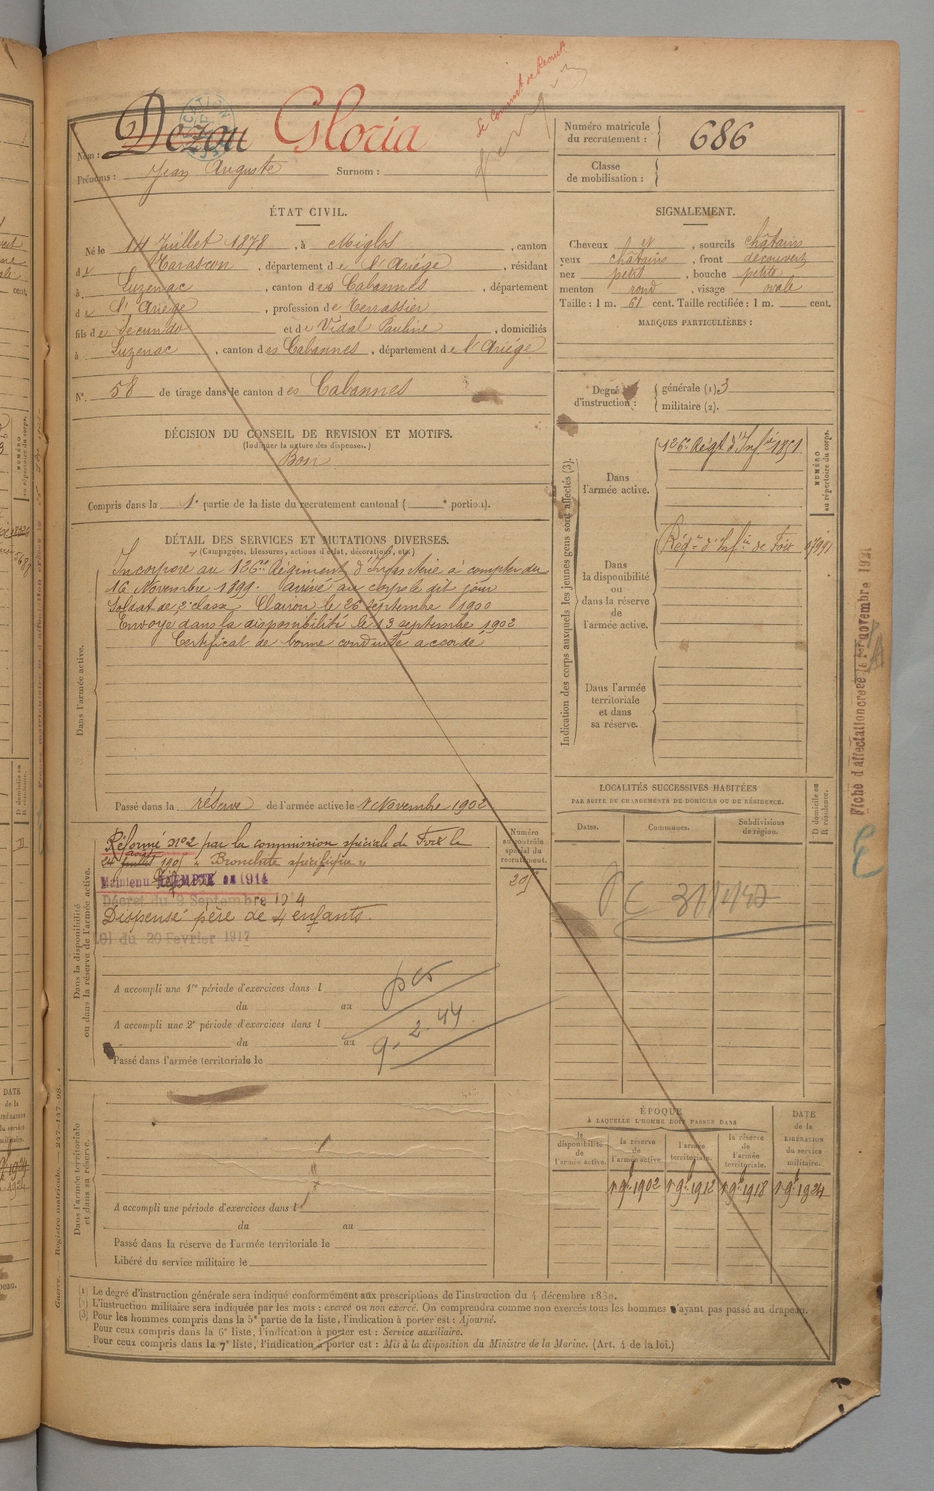 Nom : Dezou Gloria
Prénoms : Jean Auguste Surnom :
Numéro matricule du recrutement : 686
Classe de mobilisation :
ÉTAT CIVIL.
Né le 14 Juillet 1878, à Miglos, canton
de Tarascon, département de l'Ariége, résidant
à Luzenac, canton des Cabannes, département
de l'Ariège, profession de Terrassier
fils de Secundo et de Vidal Pauline, domiciliés
à Luzenac, canton des Cabannes, département de l'Ariège
N° 58 de tirage dans le canton des Cabannes
SIGNALEMENT.
Cheveux , sourcils châtains
yeux châtains, front découvert
nez petit, bouche petite
menton rond, visage ovale
Taille : 1 m. 61 cent. Taille rectifiée : 1 m. cent.
MARQUES PARTICULIÈRES :
Degré d'instruction : générale (1). 3
militaire (2).
DÉCISION DU CONSEIL DE REVISION ET MOTIFS.
(Indiquer la nature des dispenses.)
Bon
Compris dans la 1e partie de la liste du recrutement cantonal ( e portion).
DÉTAIL DES SERVICES ET MUTATIONS DIVERSES.
(Campagnes, blessures, actions d'éclat, décorations, etc.)
Dans l'armée active.
Incorporé au 126e Régiment d'Infanterie à compter du
16 Novembre 1899. arrivé au corps le dit jour
Soldat de 2e classe Clairon le 26 septembre 1900
Envoyé dans la disponibilité le 13 septembre 1902
Certificat de bonne conduite accordé
Passé dans la réserve de l'armée active le 1 Novembre 1902
Indication des corps auxquels les jeunes gens sont affectés (3).
NUMÉRO au répertoire du corps.
Dans l'armée active.
126e Régt d'Infie 1851
Dans la disponibilité ou dans la réserve de l'armée active.
Régt d'Infie de Foix
Dans l'armée territoriale et dans sa réserve.
Fiche d'affectation créée le 1er novembre
LOCALITÉS SUCCESSIVES HABITÉES
PAR SUITE DE CHANGEMENTS DE DOMICILE OU DE RÉSIDENCE.
Dates. Communes. Subdivisions de région. D domicile ou R résidence.
Dans la disponibilité ou dans la réserve de l'armée active.
Numéro au contrôle spécial du recrutement.
Réformé N°2 par la commission spéciale de Foix le
24 1901 "Bronchite spécifique"
Maintenu EXEMPTÉ en 1914
Décret du 9 Septembre 1914
Dispensé père de 4 enfants
Loi du 20 Février 1917
A accompli une 1re période d'exercices dans l
du au
A accompli une 2e période d'exercices dans l
du au
9-2-44
Passé dans l'armée territoriale le
Dans l'armée territoriale et dans sa réserve.
A accompli une période d'exercices dans l
du au
Passé dans la réserve de l'armée territoriale le
Libéré du service militaire le
ÉPOQUE
À LAQUELLE L'HOMME DOIT PASSER DANS
la disponibilité de l'armée active. la réserve de l'armée active. l'armée territoriale. la réserve de l'armée territoriale.
DATE de la LIBÉRATION du service militaire.
1 9bre 1902 1 9bre 1912 1 9bre 1918 1 9bre 1924
(1) Le degré d'instruction générale sera indiqué conformément aux prescriptions de l'instruction du 4 décembre 1889.
(2) L'instruction militaire sera indiquée par les mots : exercé ou non exercé. On comprendra comme non exercés tous les hommes n'ayant pas passé au drapeau.
(3) Pour les hommes compris dans la 5e partie de la liste, l'indication à porter est : Ajourné.
Pour ceux compris dans la 6e liste, l'indication à porter est : Service auxiliaire.
Pour ceux compris dans la 7e liste, l'indication à porter est : Mis à la disposition du Ministre de la Marine. (Art. 4 de la loi.)